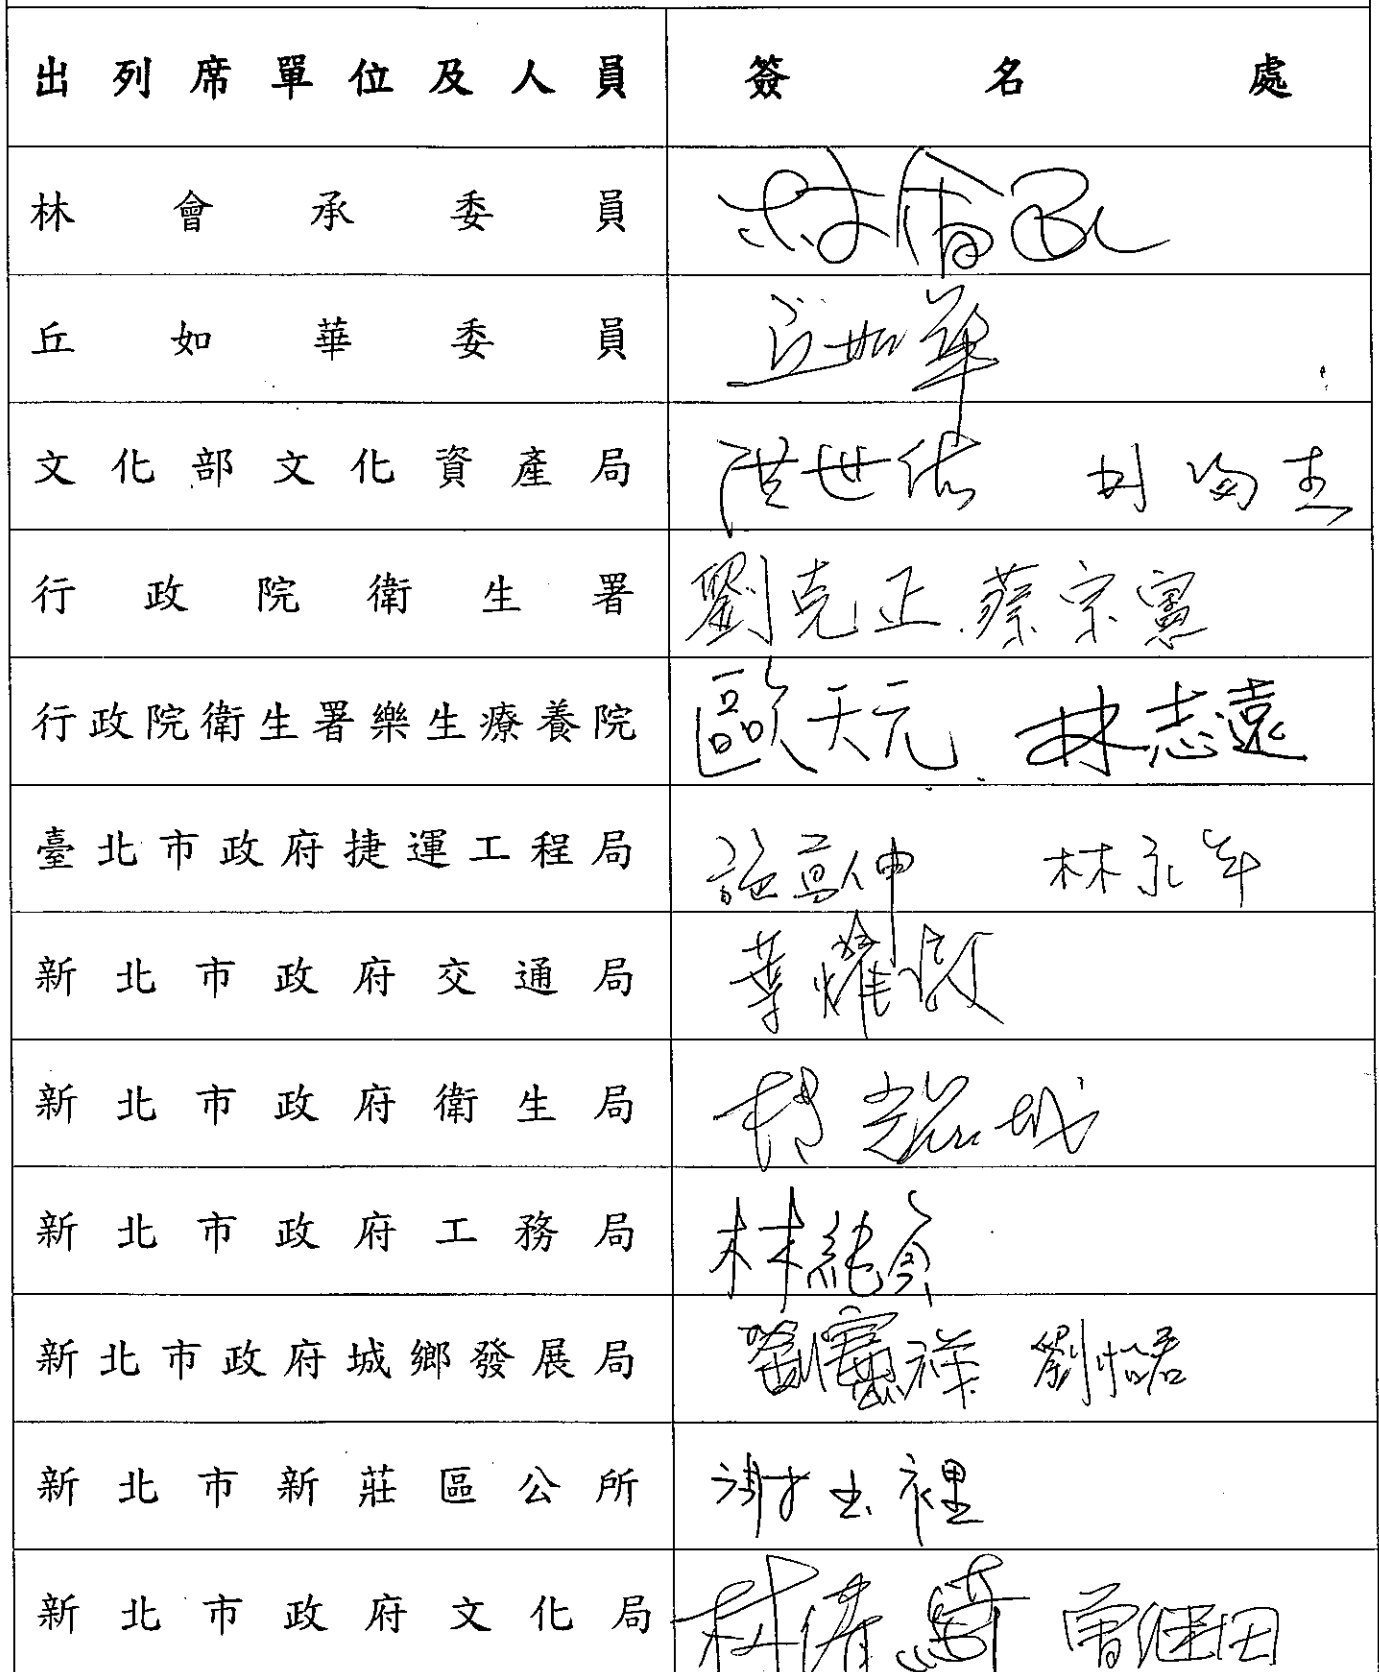 出列席單位及人員 簽名處
林會承委員 林會承
丘如華委員 丘如華
文化部文化資產局 洪世佑
行政院衛生署 劉克正 蔡宗憲
行政院衛生署樂生療養院 歐天元 林志遠
臺北市政府捷運工程局 林永年
新北市政府交通局 葉耀
新北市政府衛生局 林 城
新北市政府工務局 林純
新北市政府城鄉發展局 劉 祥 劉怡君
新北市新莊區公所 謝玉裡
新北市政府文化局 林 曾继田